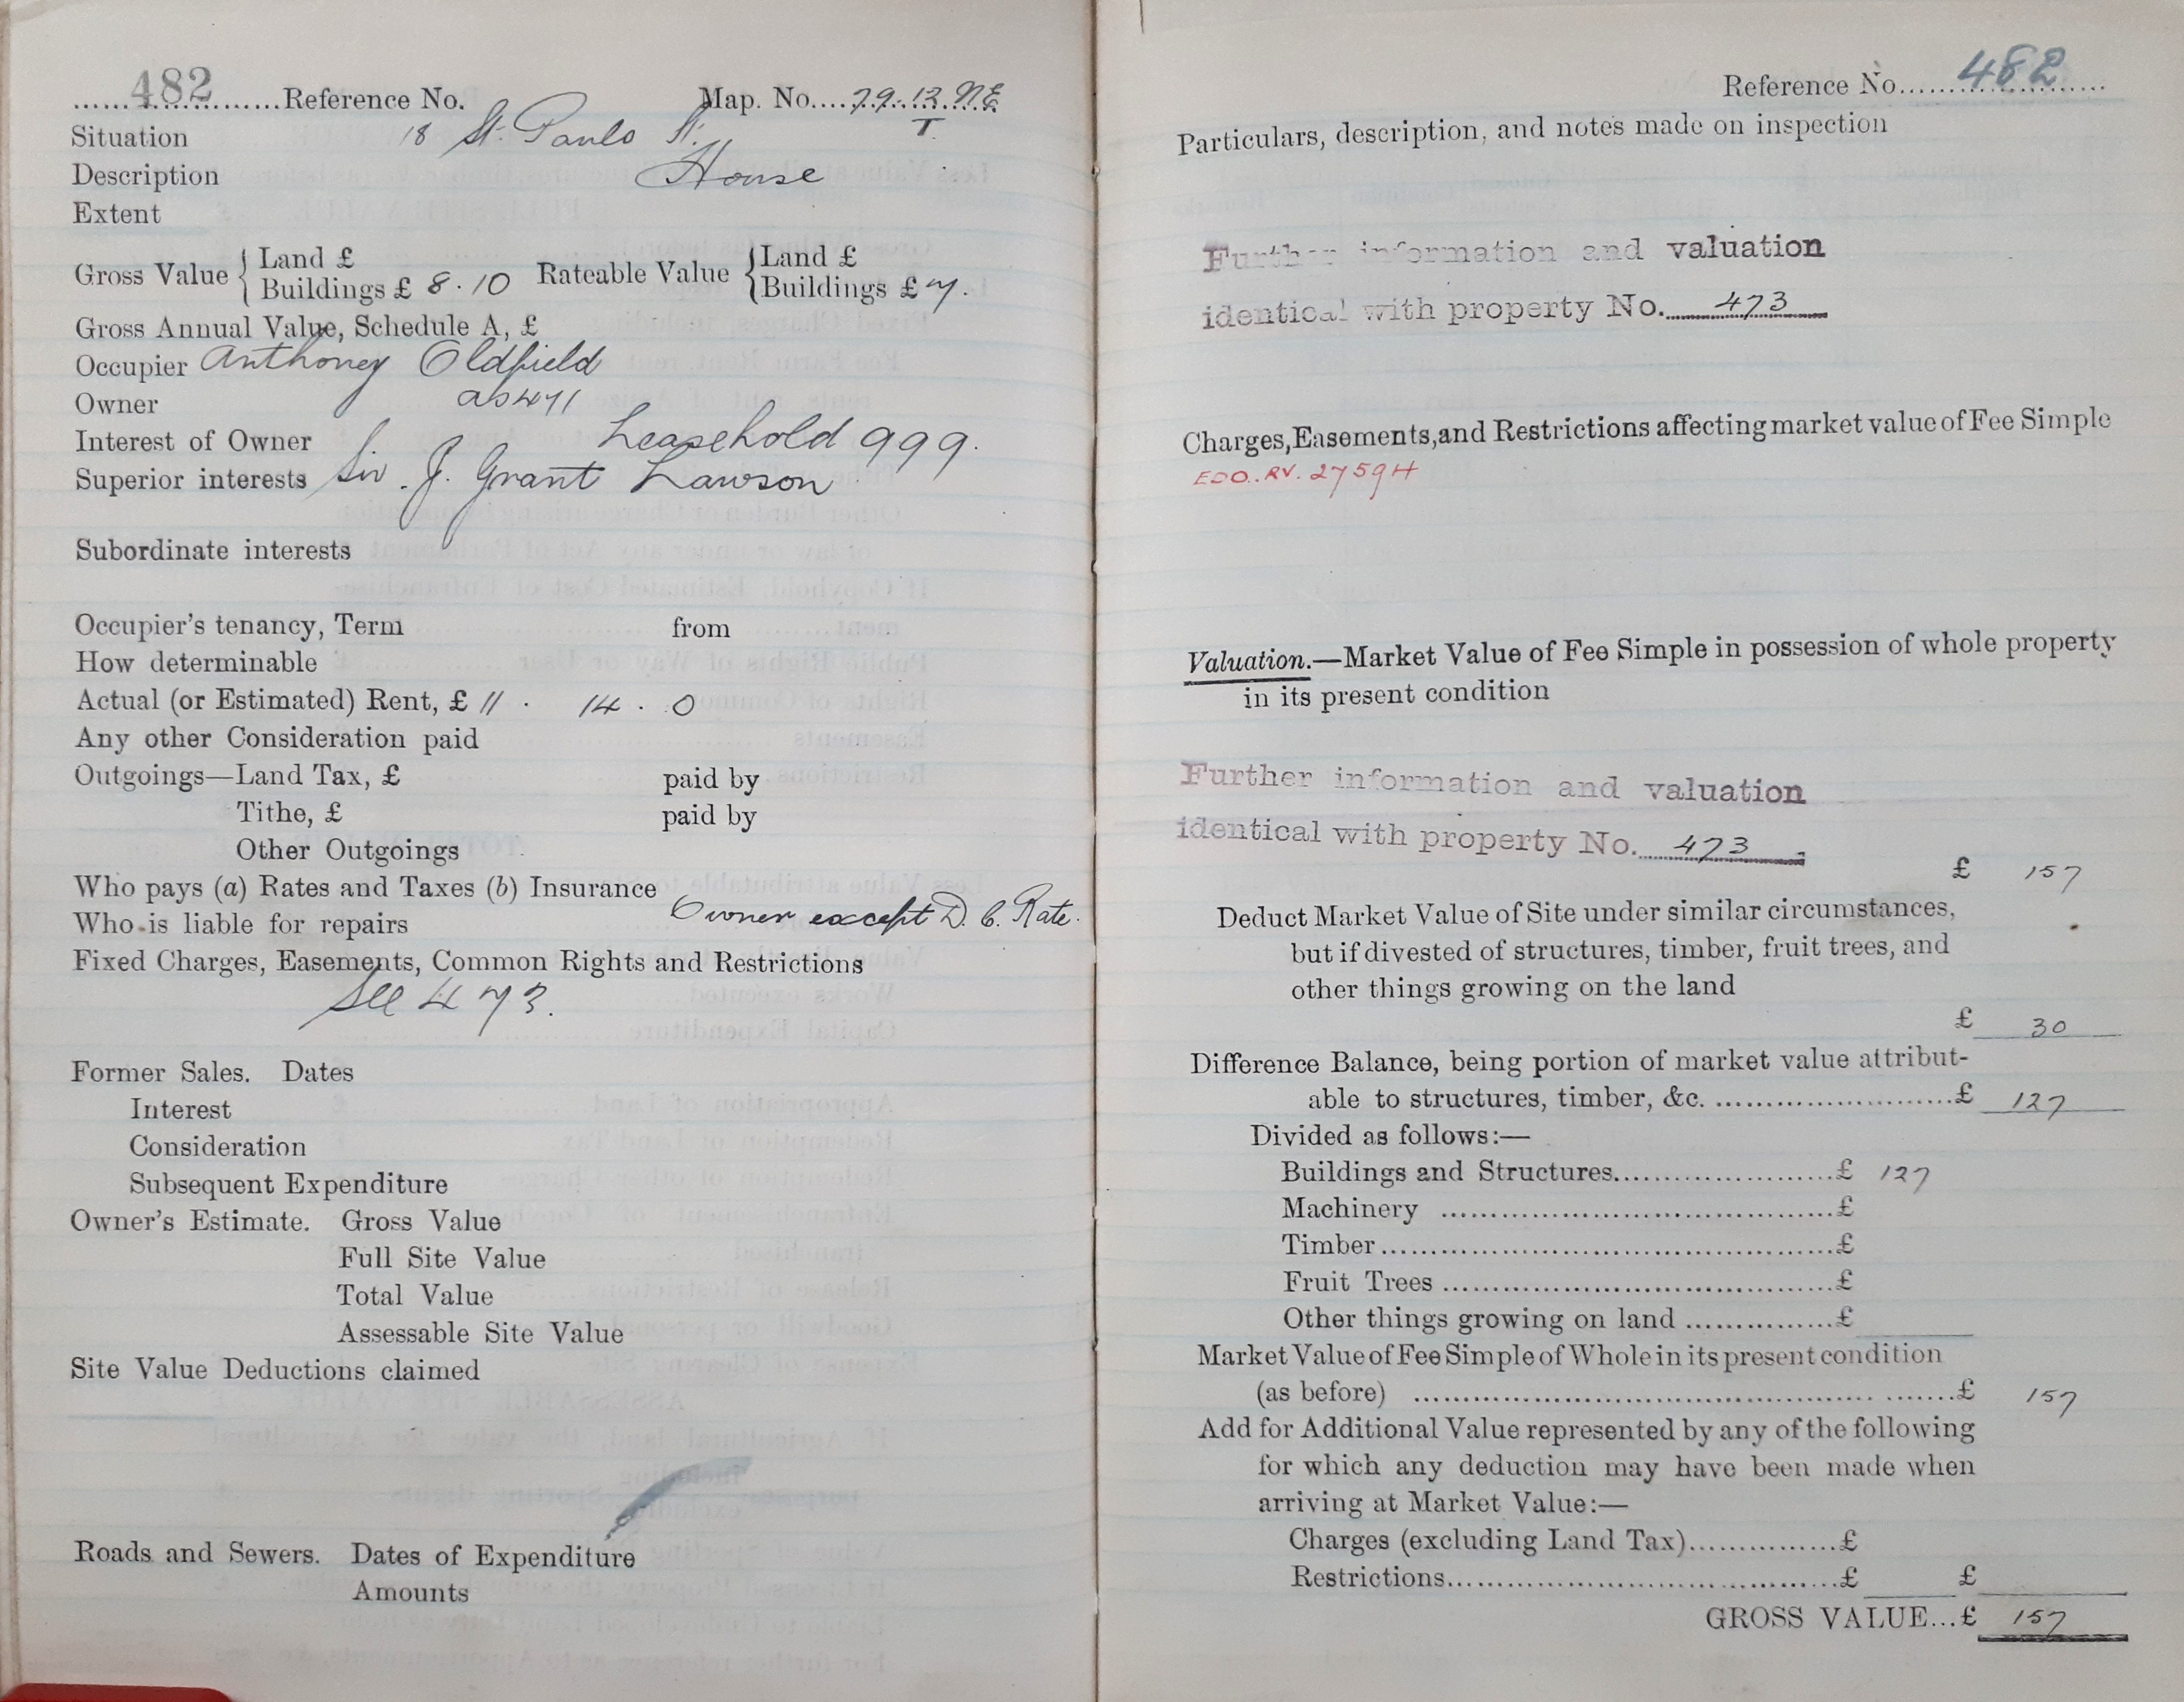 482 Reference No. Map. No. 79.12.N.E.
T.
Situation 18 St. Pauls St.
Description House
Extent
Gross Value { Land £
Buildings £ 8.10
Rateable Value { Land £
Buildings £ 7.
Gross Annual Value, Schedule A, £
Occupier Anthoney Oldfield
Owner as 471
Interest of Owner Leasehold 999.
Superior interests Sir J. Grant Lawson
Subordinate interests
Occupier's tenancy, Term from
How determinable
Actual (or Estimated) Rent, £ 11 . 14 . 0
Any other Consideration paid
Outgoings—Land Tax, £ paid by
Tithe, £ paid by
Other Outgoings
Who pays (a) Rates and Taxes (b) Insurance
Who is liable for repairs Owner except D. C. Rate.
Fixed Charges, Easements, Common Rights and Restrictions
See 473.
Former Sales. Dates
Interest
Consideration
Subsequent Expenditure
Owner's Estimate. Gross Value
Full Site Value
Total Value
Assessable Site Value
Site Value Deductions claimed
Roads and Sewers. Dates of Expenditure
Amounts
Reference No. 482
Particulars, description, and notes made on inspection
Further information and valuation
identical with property No. 473
Charges, Easements, and Restrictions affecting market value of Fee Simple
EDO. RV. 2759H
Valuation.—Market Value of Fee Simple in possession of whole property
in its present condition
Further information and valuation
identical with property No. 473.
£ 157
Deduct Market Value of Site under similar circumstances,
but if divested of structures, timber, fruit trees, and
other things growing on the land
£ 30
Difference Balance, being portion of market value attribut-
able to structures, timber, &c. £ 127
Divided as follows:—
Buildings and Structures £ 127
Machinery £
Timber £
Fruit Trees £
Other things growing on land £
Market Value of Fee Simple of Whole in its present condition
(as before) £ 157
Add for Additional Value represented by any of the following
for which any deduction may have been made when
arriving at Market Value:—
Charges (excluding Land Tax) £
Restrictions £ £
GROSS VALUE...£ 157